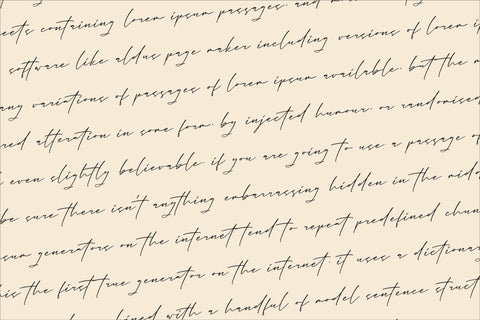 eets containing lorem ipsum passages, and m
software like aldus page maker including versions of lorem ip
any variations of passages of lorem ipsum available, but the m
red alteration in some form, by injected humour, or randomised
t even slightly believable. if you are going to use a passage of
be sure there isn't anything embarrassing hidden in the midd
sum generators on the internet tend to repeat predefined chun
his the first true generator on the internet. it uses a dictionary
ined with a handful of model sentence struct